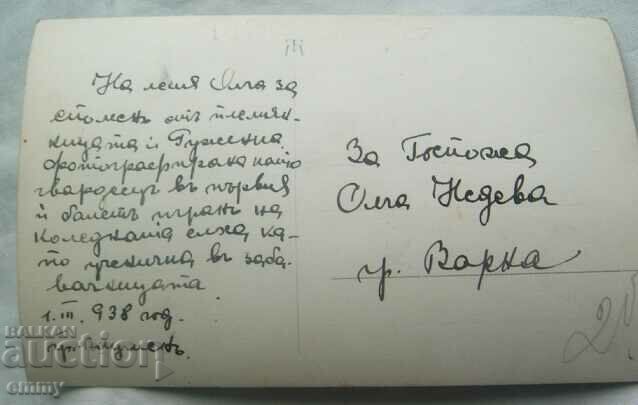 На леля Олга за
споменъ отъ племян-
ницата ѝ Румяна
фотографирана като
гвардеецъ въ първия
ѝ балетъ игранъ на
Коледната елха ка-
то ученичка въ заба-
вачницата
1. III. 938 год.
гр.
За Госпожа
Олга Недева
гр. Варна
BALKAN
auction
emmy